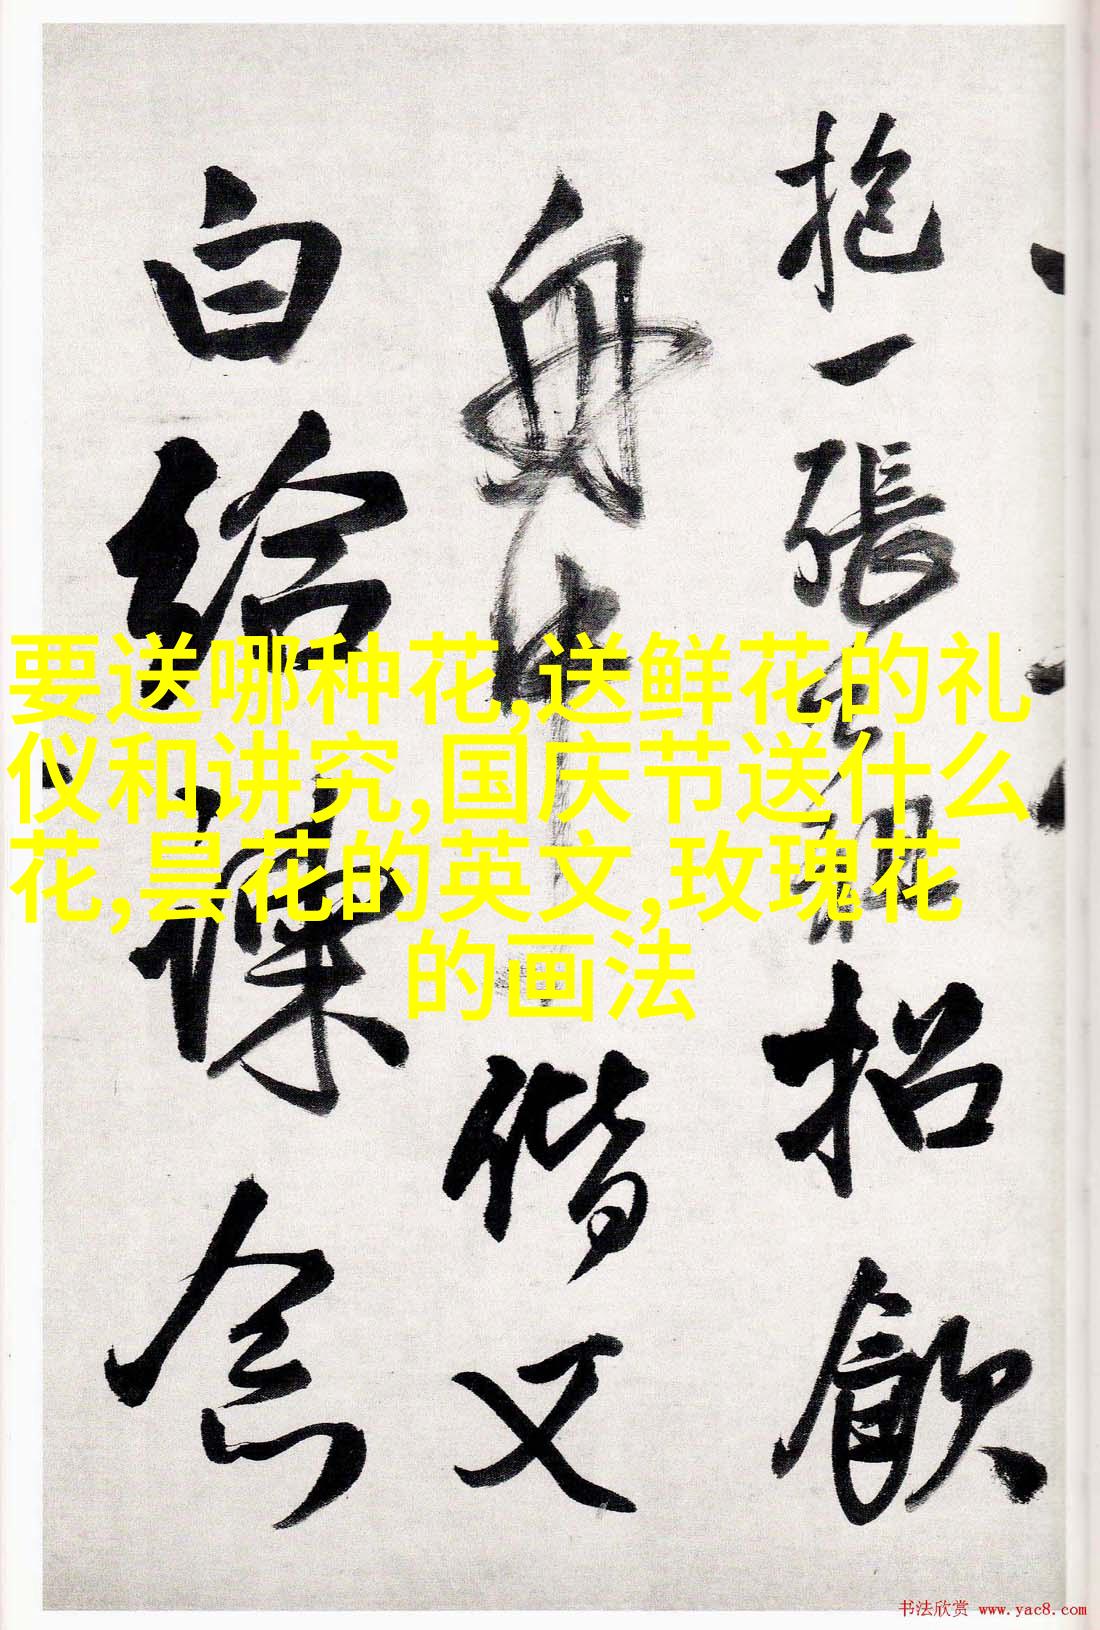 抱一張
招飲
舟中
偕文
白給諫
念
要送哪种花,送鲜花的礼
仪和讲究,国庆节送什么
花,昙花的英文,玫瑰花
的画法
书法欣赏 www.yac8.com